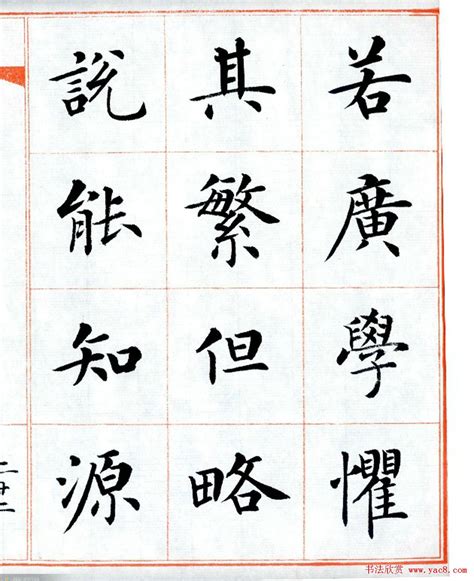 若廣學懼
其繁但略
說能知源
二十二
书法欣赏 www.yac8.com